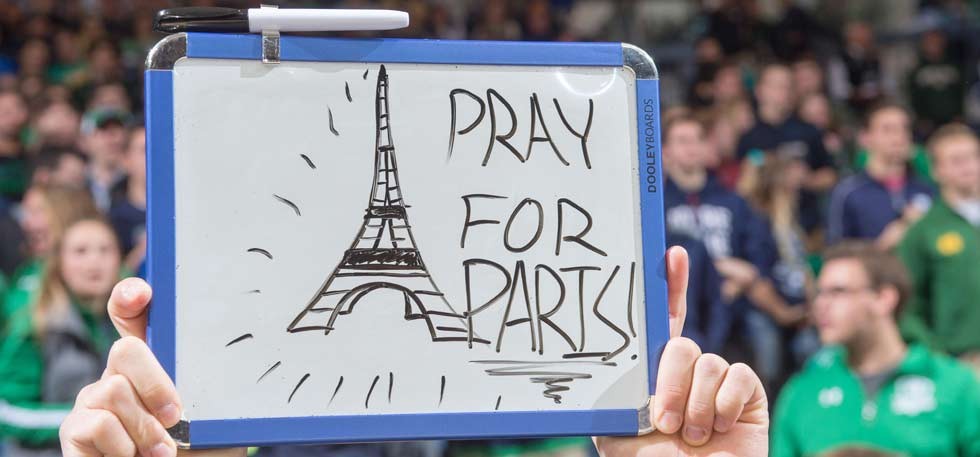 PRAY
FOR
PARTS!
DOOLEYBOARDS